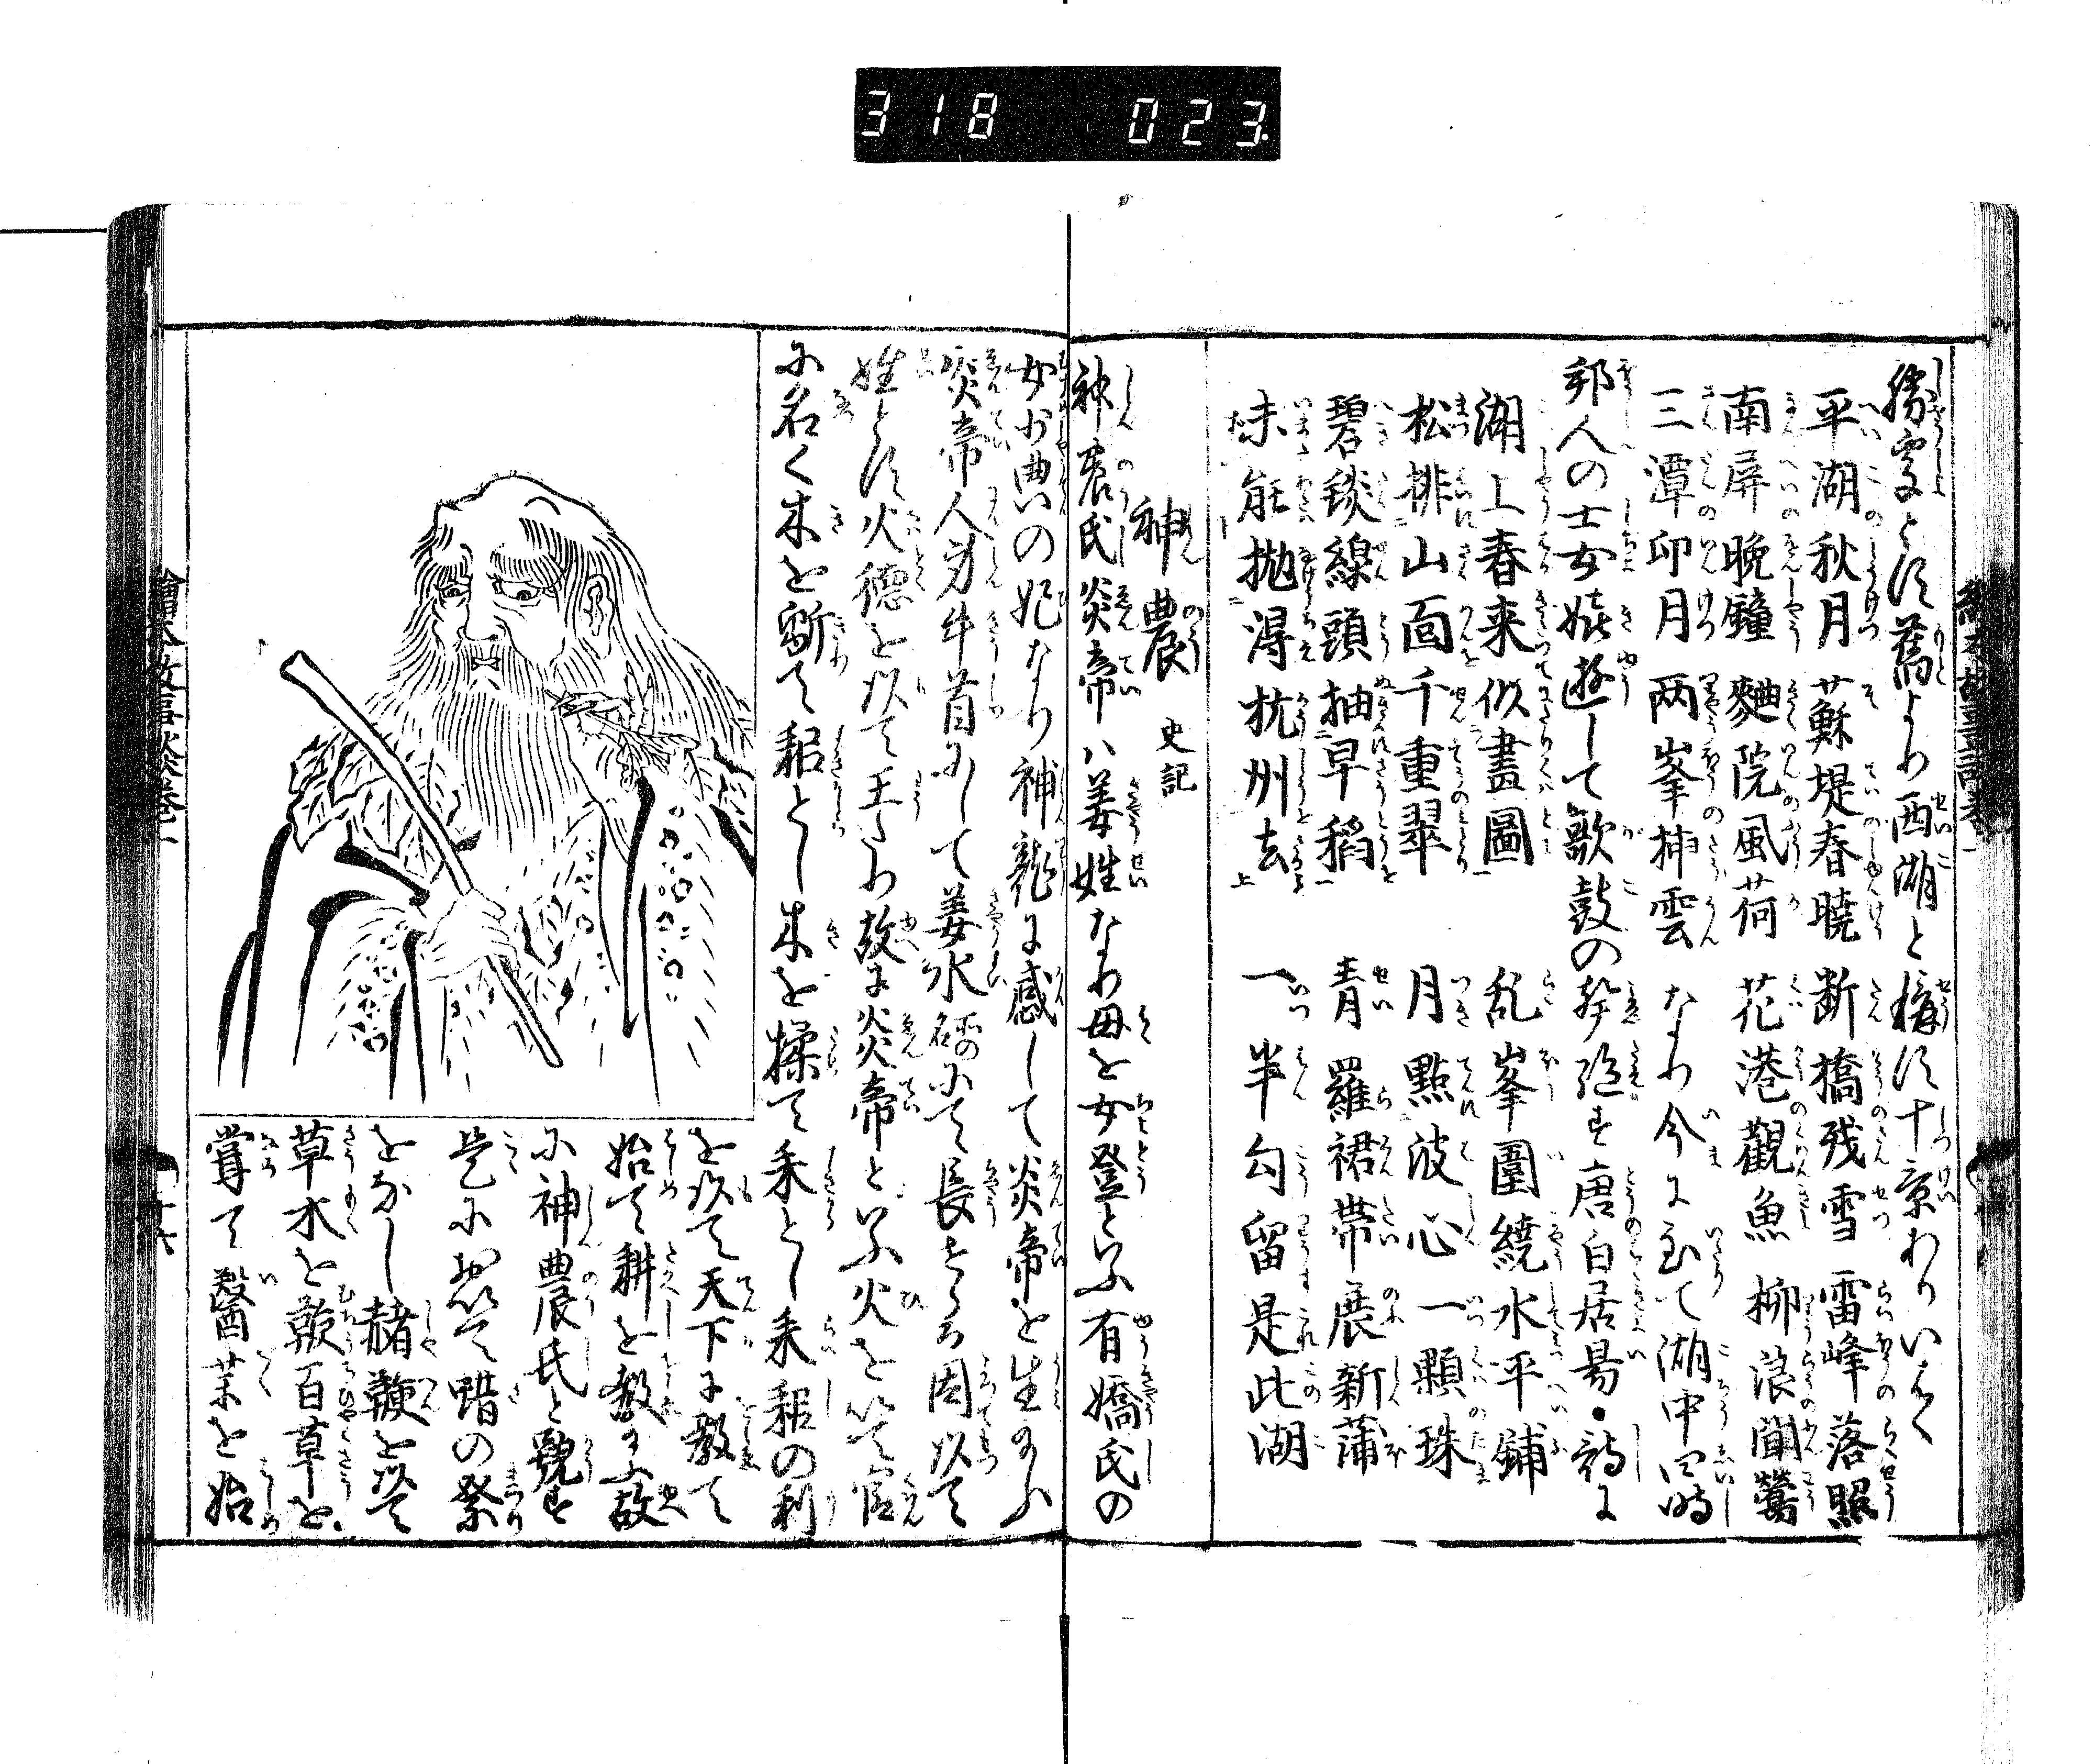 318 023
勝景とす舊より西湖と稱す十景ありいはく
平湖秋月 蘇堤春曉 断橋残雪 雷峰落照
南屏晩鐘 麯院風荷 花港觀魚 柳浪聞鶯
三潭印月 两峯挿雲 なり今に至て湖中四時
邦人の士女嬉遊して歌鼓の声絶ず唐白居易詩に
湖上春来似畫圖 乱峯圍繞水平鋪
松排山面千重翠 月點波心一顆珠
碧毯線頭抽早稻 青羅裙帯展新蒲
未能抛得杭州去 一半勾留是此湖
神農 史記
神農氏炎帝ハ姜姓なり母を女登といふ有嬌氏の
女少典の妃なり神龍に感して炎帝を生のふ
炎帝人身牛首にして姜水のにて長ずる因以て
姓とす火徳を以て王たり故に炎帝といふ火を以て官
に名く木を斲て耜とし木を揉て耒とし耒耜の利
を以て天下に教て
始て耕を教ふ故
に神農氏と號す
是に於て蜡の祭
をなし赭鞭を以て
草木を鞭百草を
嘗て醫薬を始
繪本故事談巻一